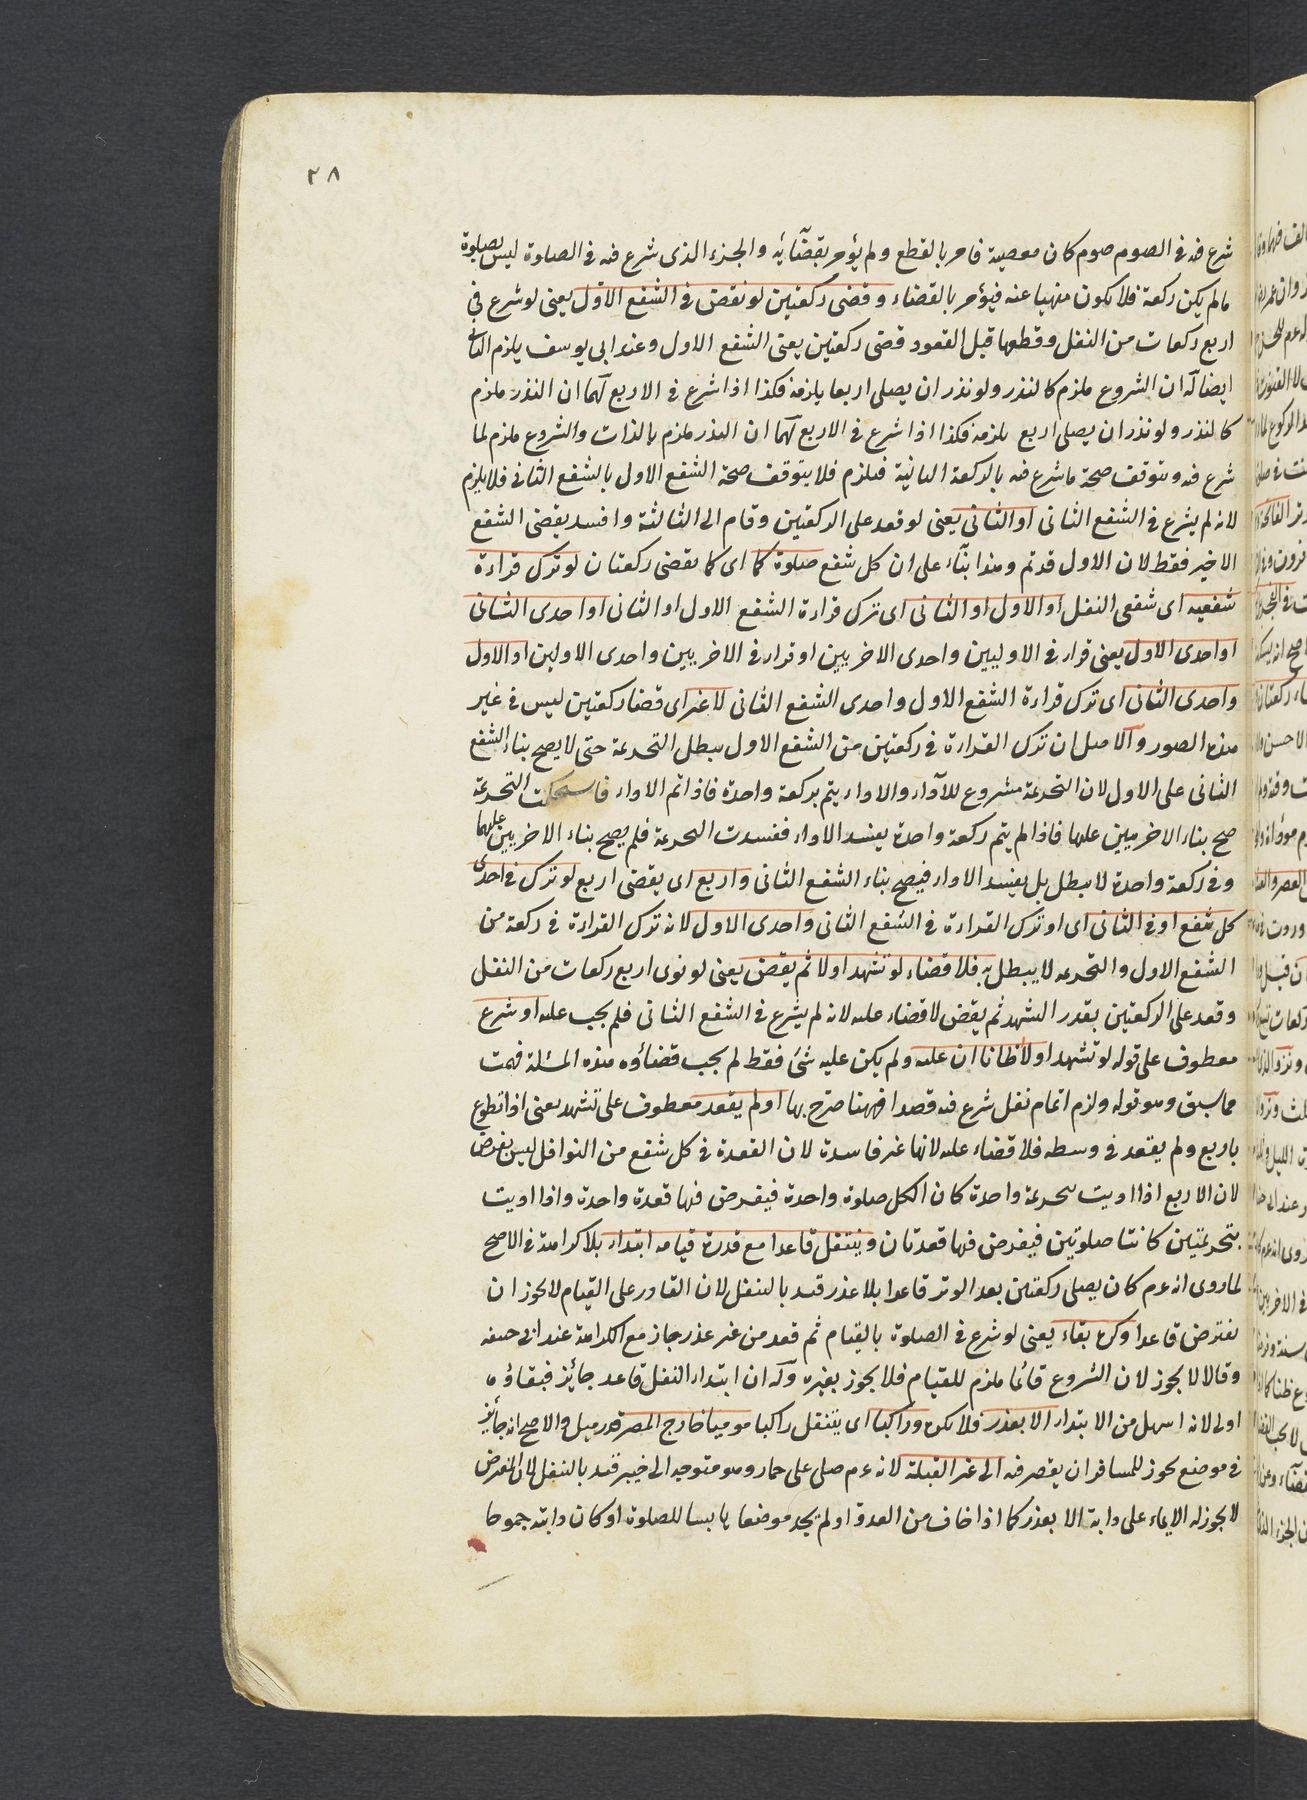 ٢٨
شرع فيه في الصوم صوم كان معصية فامر بالقطع ولم يؤمر بقضائه والجزء الذى شرع فيه في الصلوة ليس بصلوة
مالم يكن ركعة فلا يكون منهيا عنه فيؤمر بالقضاء وقضى ركعتين لو نقض في الشفع الاول يعنى لو شرع في
اربع ركعات من النفل وقطعها قبل القعود قضى ركعتين يعنى الشفع الاول وعند ابى يوسف يلزم الثانى
ايضا له ان الشروع ملزم كالنذر ولو نذر ان يصلى اربعا يلزمه فكذا اذا شرع في الاربع لهما ان النذر ملزم
كالنذر ولو نذر ان يصلى اربع يلزمه فكذا اذا شرع في الاربع لهما ان النذر ملزم بالذات والشروع ملزم لما
شرع فيه ويتوقف صحة ما شرع فيه بالركعة الثانية فيلزم فلا يتوقف صحة الشفع الاول بالشفع الثانى فلا يلزم
لانه لم يشرع في الشفع الثانى او الثانى يعنى لو قعد على الركعتين وقام الى الثالثة وافسد يقضى الشفع
الاخير فقط لان الاول قد تم وهذا بناء على ان كل شفع صلوة كما اى كما يقضى ركعتان لو ترك قراءة
شفعيه اى شفعى النفل او الاول او الثانى اى ترك قراءة الشفع الاول او الثانى او احدى الثانى
او احدى الاول يعنى قراء في الاوليين واحدى الاخريين او قراء في الاخريين واحدى الاوليين او الاول
واحدى الثانى اى ترك قراءة الشفع الاول واحدى الشفع الثانى لا غير اى قضا ركعتين ليس في غير
هذه الصور والاصل ان ترك القراءة في ركعتين من الشفع الاول يبطل التحريمة حتى لا يصح بناء الشفع
الثانى على الاول لان التحريمة مشروع للاداء والاداء يتم بركعة واحدة فاذا تم الاداء فاستحكمت التحريمة
صح بناء الاخريين عليها فاذا لم يتم ركعة واحدة يفسد الاداء ففسدت التحريمة فلم يصح بناء الاخريين عليها
وفي ركعة واحدة لا يبطل بل يفسد الاداء فيصح بناء الشفع الثانى واربع اى يقضى اربع لو ترك في احدى
كل شفع او في الثانى اى او ترك القراءة في الشفع الثانى واحدى الاول لانه ترك القراءة في ركعة من
الشفع الاول والتحريمه لا يبطل به فلا قضاء لو تشهد اولا ثم يقض يعنى لو نوى اربع ركعات من النفل
وقعد على الركعتين بقدر التشهد ثم يقض لا قضاء عليه لانه لم يشرع في الشفع الثانى فلم يجب عليه او شرع
معطوف على قوله لو تشهد اولا ظانا ان عليه ولم يكن عليه شئ فقط لم يجب قضاؤه هذه المسئلة فهمت
مما سبق وهو قوله ولزم اتمام نفل شرع فيه قصدا فههنا صرح بها او لم يقعد معطوف على تشهد يعنى اذا تطوع
باربع ولم يقعد في وسطه فلا قضاء عليه لانها غير فاسدة لان القعدة في كل شفع من النوافل ليس بفرض
لان الاربع اذا اديت بتحريمة واحدة كان الكل صلوة واحدة فيفرض فيها قعدة واحدة واذا اديت
بتحريمتين كانتا صلوتين فيفرض فيها قعدتان ويتنفل قاعدا مع قدرة قيامه ابتداء بلا كراهة في الاصح
لما روى انه عم كان يصلى ركعتين بعد الوتر قاعدا بلا عذر قيد بالنفل لان القادر على القيام لا يجوز ان
يفترض قاعدا وكره بقاء يعنى لو شرع في الصلوة بالقيام ثم قعد من غير عذر جاز مع الكراهة عند ابى حنيفه
وقالا لا يجوز لان الشروع قائما ملزم للقيام فلا يجوز بغيره وله ان ابتداء النفل قاعد جائز فبقاؤه
اولى لانه اسهل من الابتداء الا بعذر فلا يكره وراكبا اى يتنفل راكبا موميا خارج المصر قدر ميل والاصح انه جائز
في موضع يجوز للمسافر ان يقصر فيه الى غير القبلة لانه عم صلى على حمار وهو متوجه الى خيبر قيد بالنفل لان المفرض
لا يجوز له الايماء على دابة الا بعذر كما اذا خاف من العدو او لم يجد موضعا يابسا للصلوة او كان دابته جموحا